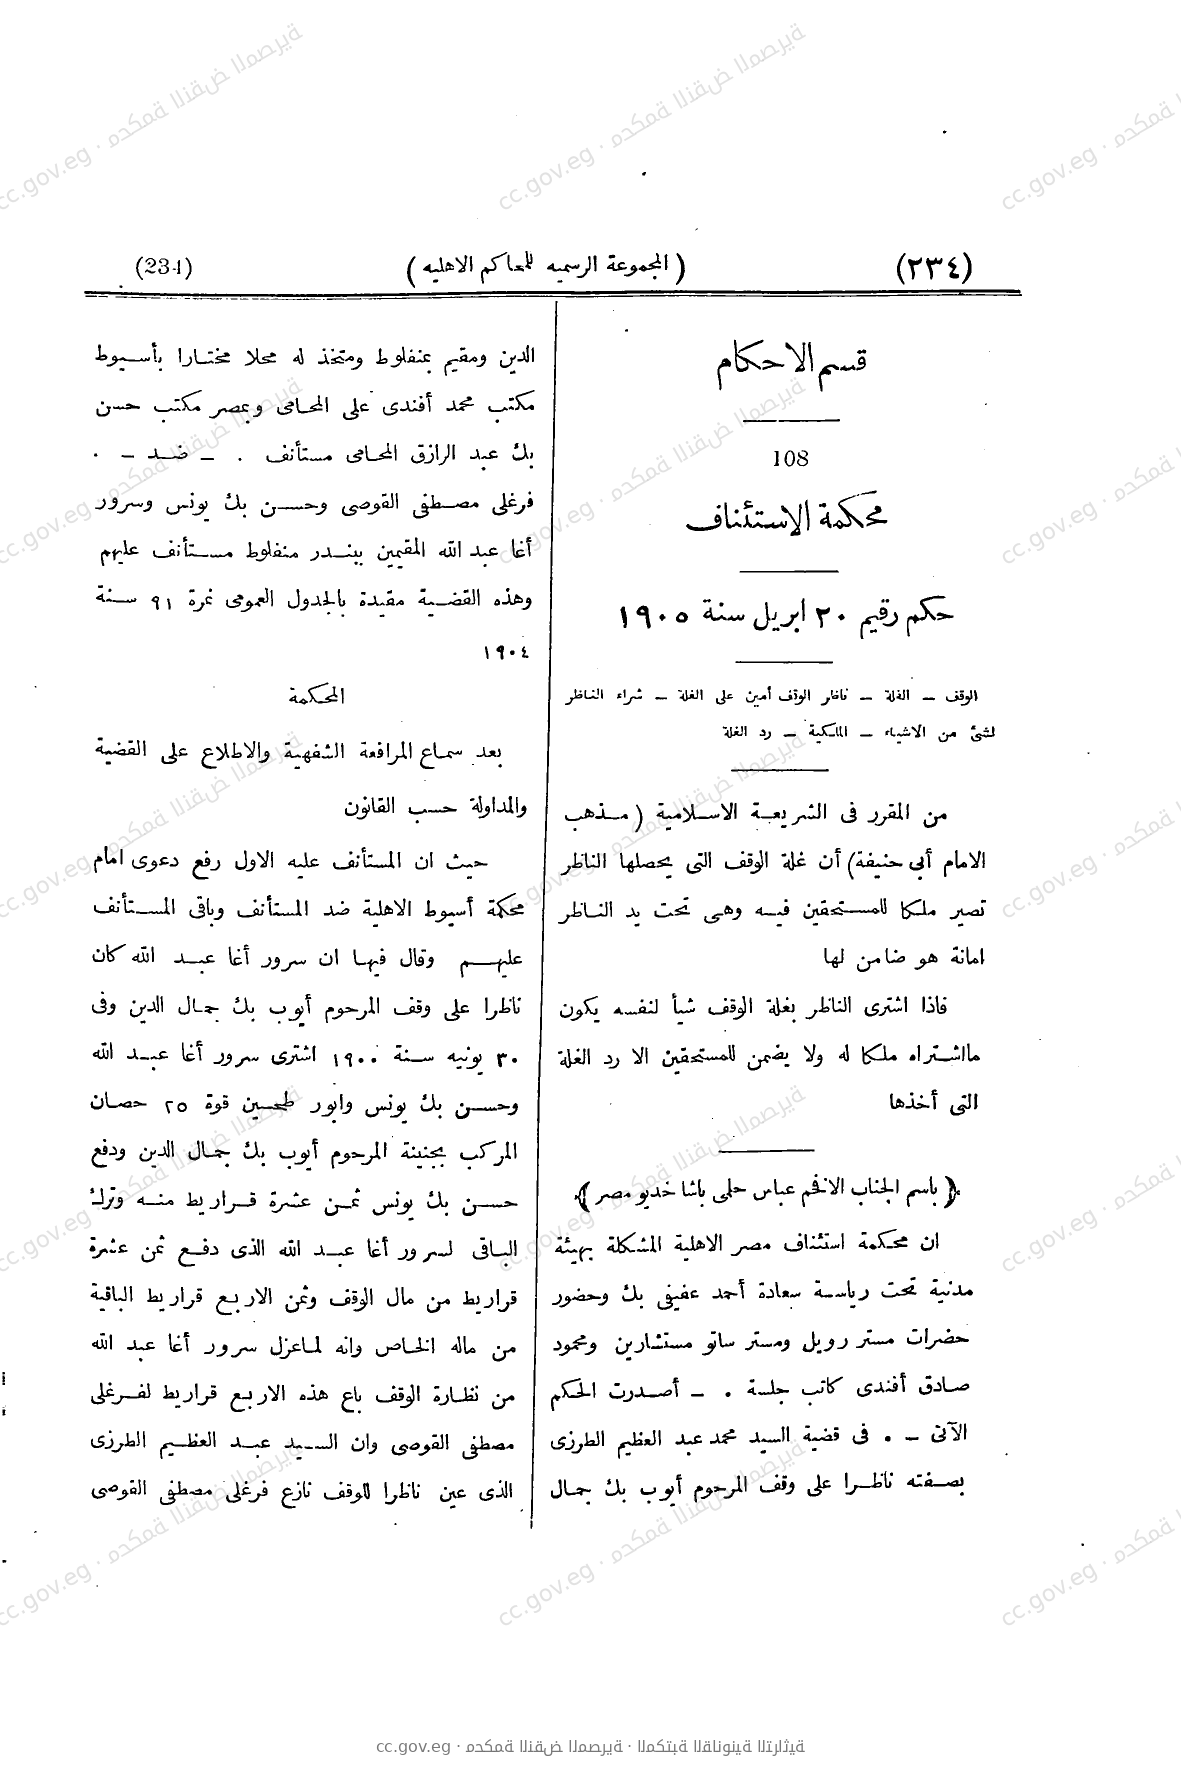 (٢٣٤)
( المجموعة الرسميه للمحاكم الاهليه )
(234)
قسم الاحكام
108
محكمة الاستئناف
حكم رقيم ٢٠ ابريل سنة ١٩٠٥
الوقف – الغلة – ناظر الوقف أمين على الغلة – شراء الناظر
لشئ من الاشياء – الملكية – رد الغلة
من المقرر فى الشريعة الاسلامية ( مذهب
الامام أبى حنيفة) أن غلة الوقف التى يحصلها الناظر
تصير ملكا للمستحقين فيه وهى تحت يد الناظر
امانة هو ضامن لها
فاذا اشترى الناظر بغلة الوقف شيأ لنفسه يكون
مااشتراه ملكا له ولا يضمن للمستحقين الا رد الغلة
التى أخذها
( باسم الجناب الافخم عباس حلمى باشا خديو مصر )
ان محكمة استئناف مصر الاهلية المشكلة بهيئة
مدنية تحت رياسة سعادة أحمد عفيفى بك وحضور
حضرات مستر رويل ومستر ساتو مستشارين ومحمود
صادق أفندى كاتب جلسة . – أصدرت الحكم
الآتى – . فى قضية السيد محمد عبد العظيم الطرزى
بصفته ناظرا على وقف المرحوم أيوب بك جمال
الدين ومقيم بمنفلوط ومتخذ له محلا مختارا بأسيوط
مكتب محمد أفندى على المحامى وبمصر مكتب حسن
بك عبد الرازق المحامى مستأنف . – ضد – .
فرغلى مصطفى القوصى وحسن بك يونس وسرور
أغا عبد الله المقيمين ببندر منفلوط مستأنف عليهم
وهذه القضية مقيدة بالجدول العمومى نمرة ٩١ سنة
١٩٠٤
المحكمة
بعد سماع المرافعة الشفهية والاطلاع على القضية
والمداولة حسب القانون
حيث ان المستأنف عليه الاول رفع دعوى امام
محكمة أسيوط الاهلية ضد المستأنف وباقى المستأنف
عليهم وقال فيها ان سرور أغا عبد الله كان
ناظرا على وقف المرحوم أيوب بك جمال الدين وفى
٣٠ يونيه سنة ١٩٠٠ اشترى سرور أغا عبد الله
وحسن بك يونس وابور طحين قوة ٢٥ حصان
المركب بجنينة المرحوم أيوب بك جمال الدين ودفع
حسن بك يونس ثمن عشرة قراريط منه وترك
الباقى لسرور أغا عبد الله الذى دفع ثمن عشرة
قراريط من مال الوقف وثمن الاربع قراريط الباقية
من ماله الخاص وانه لماعزل سرور أغا عبد الله
من نظارة الوقف باع هذه الاربع قراريط لفرغلى
مصطفى القوصى وان السيد عبد العظيم الطرزى
الذى عين ناظرا للوقف نازع فرغلى مصطفى القوصى
cc.gov.eg · محكمة النقض المصرية · المكتبة القانونية التراثية